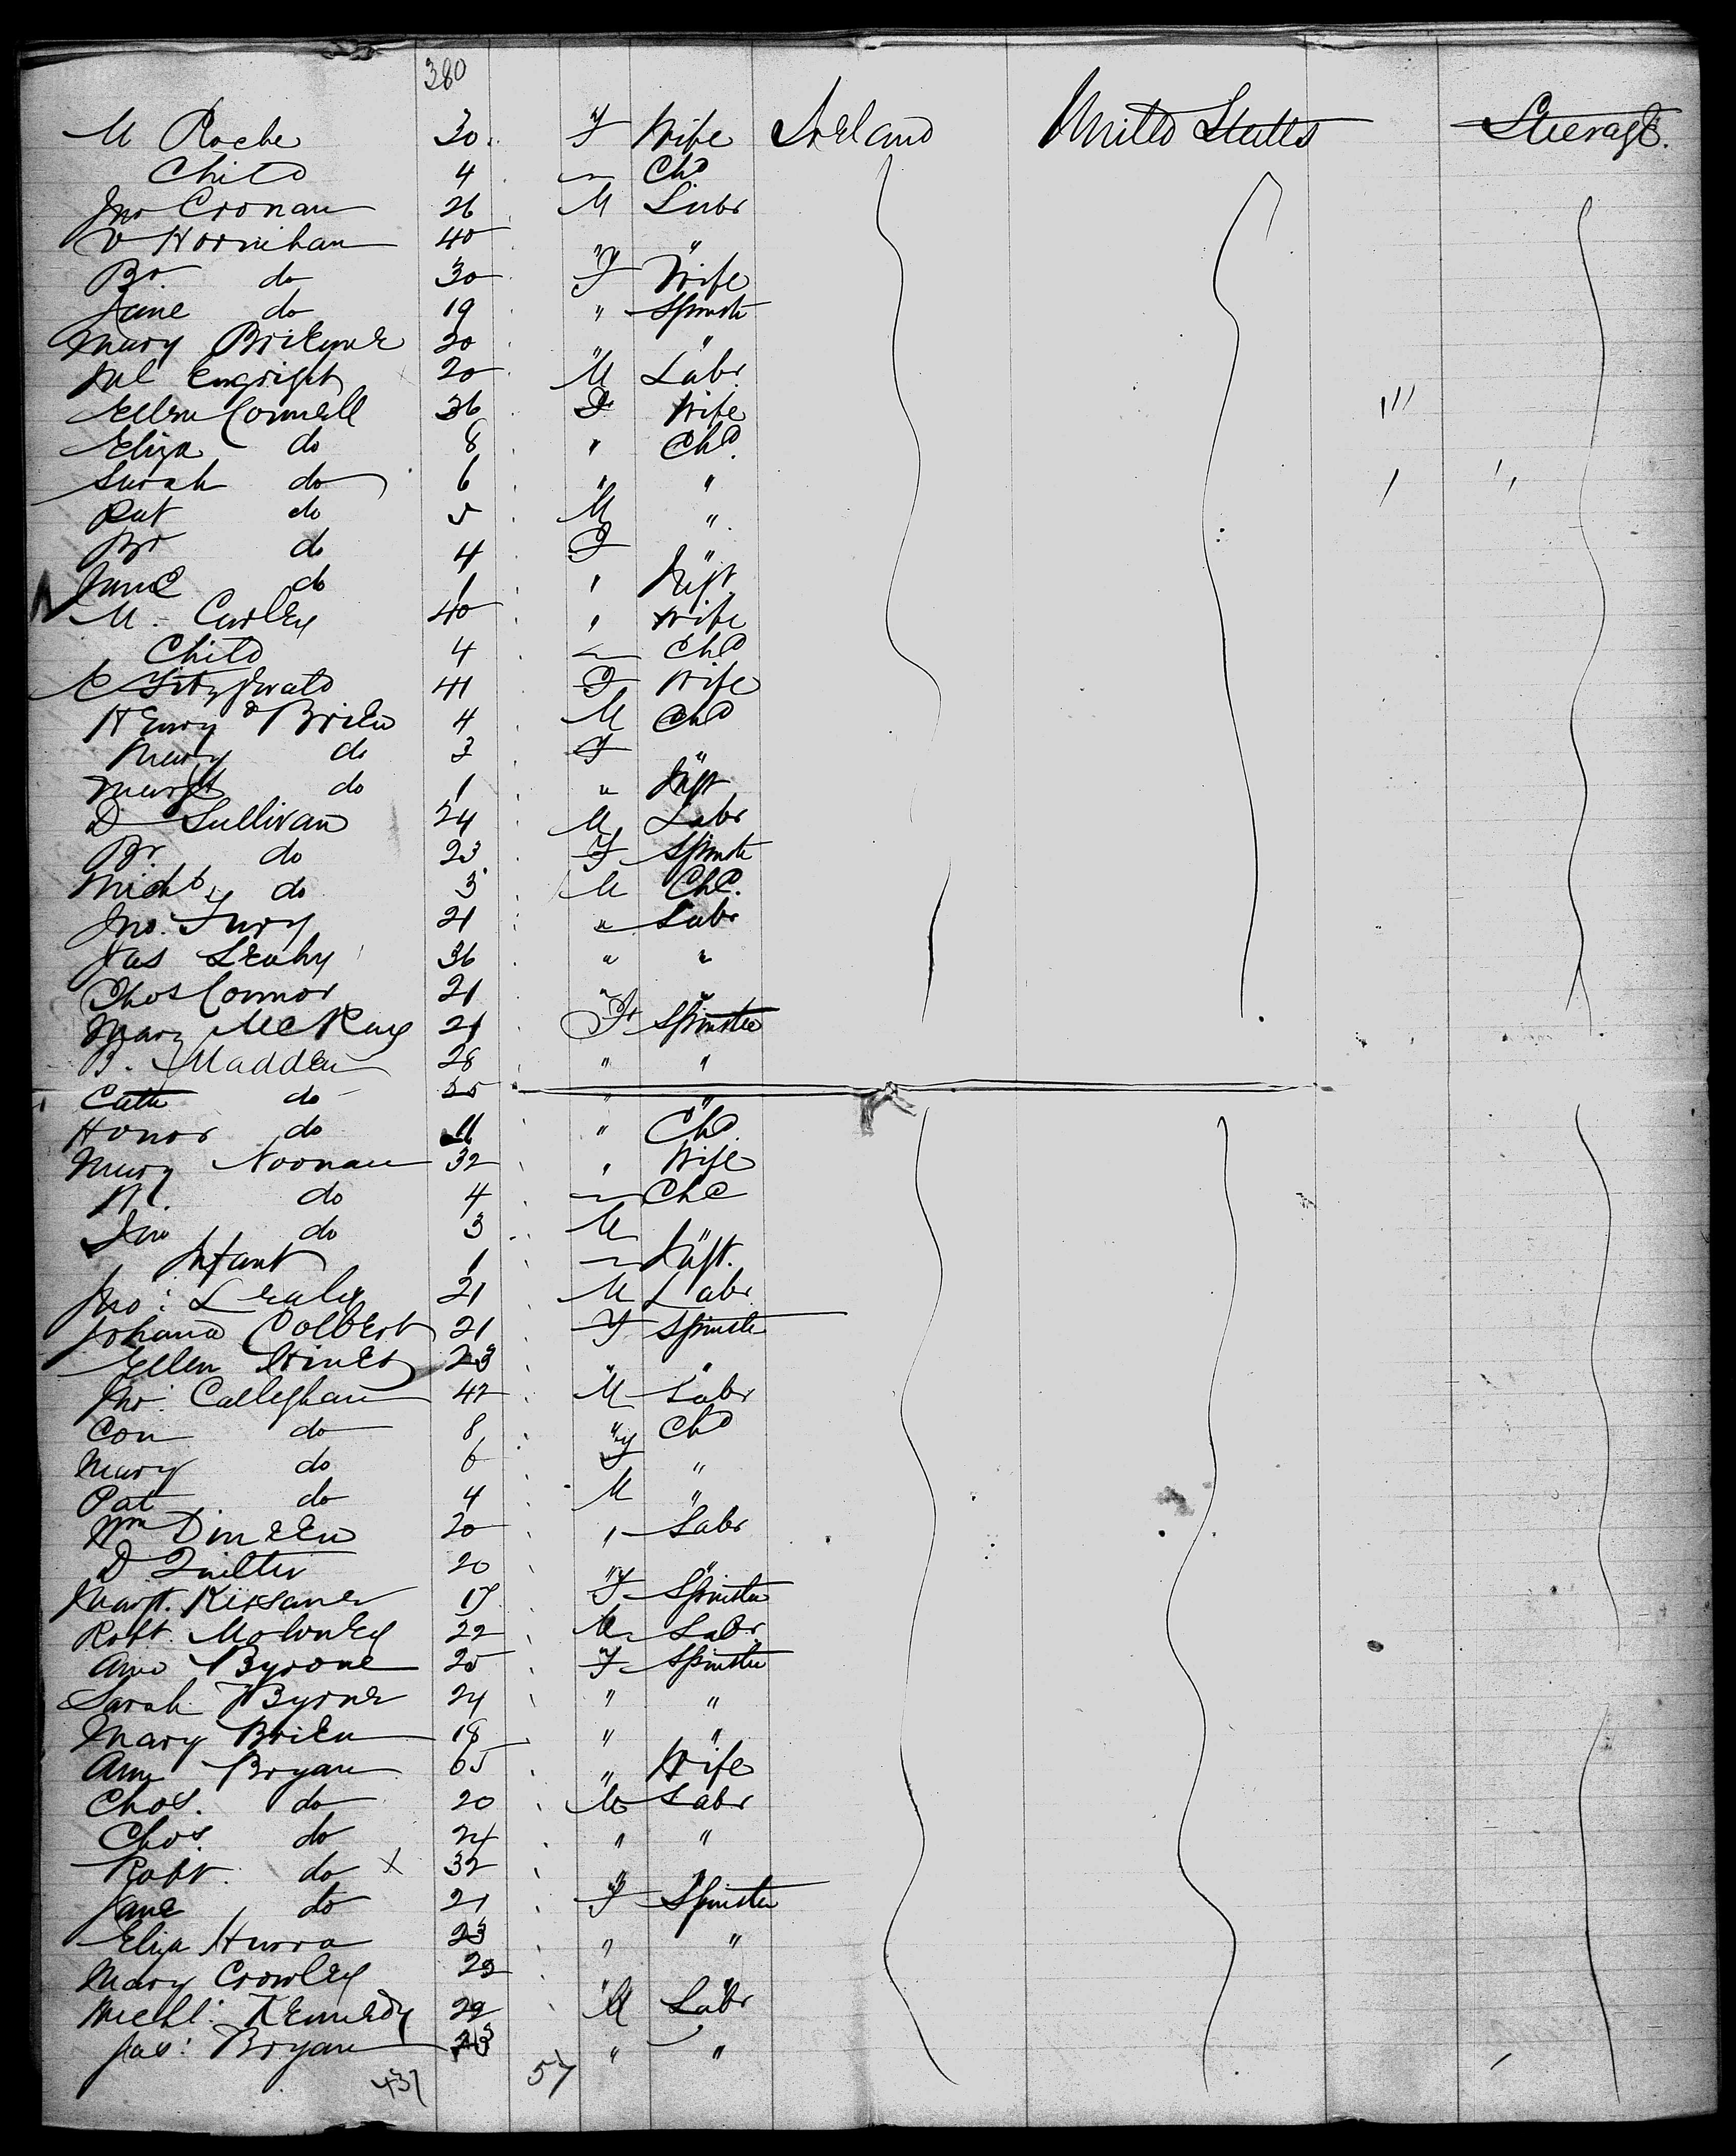 380
M Roche 30 F Wife Ireland United States Steerage.
Child 4 Chd
Jno Cronan 26 M Labr
40 " "
Br. do 30 F Wife
Jane do 19 " Spinstr
Mary 20 " "
Ml Enright 20 M Labr
Ellen Connell 36 F Wife
Eliza do 8 " Chd.
Sarah do 6 " "
Pat do 5 M "
Br do 4 F "
Jane do 1 " Inft.
M. Curley 40 " Wife
Child 4 Chd
C Fitzgerald 41 F Wife
Henry O'Brien 4 M Chd
Mary do 3 F "
Margt do 1 " Inft
D Sullivan 24 M Labr
Br. do 23 F Spinstr
Michl. do 3 M Chd.
Jno. Fury 21 " Labr
Jas Leahy 36 " "
Thos Connor 21 " "
Mary McKay 21 F Spinster
B. Madden 28 " "
Cath do 25 " "
Honor do 11 " Chd
Mary Noonan 32 " Wife
do 4 Chd
Jno do 3 M "
Infant 1 Inft.
Jno: Leahy 21 M Labr
Johana Colbert 21 F Spinstr
Ellen Hines 23 " "
Jno: Calleghan 42 M Labr
Con do 8 " Chd
Mary do 6 F "
Pat do 4 M "
Wm Dineen 20 " Labr
D Quilter 20 " "
Margt. Kissane 17 F Spinster
Robt. Moloney 22 M Labr
Ann Byrone 25 F Spinster
Sarah Byrne 24 " "
Mary Brien 18 " "
Ann Bryan 65 " Wife
Chas. do 20 M Labr
Thos. do 24 " "
Robt. do x 32 " "
Jane do 21 F Spinster
Eliza Hurra 23 " "
Mary Crowley 23 " "
Michl: Kennedy 22 M Labr
Jas: Bryan 23 " "
437 57